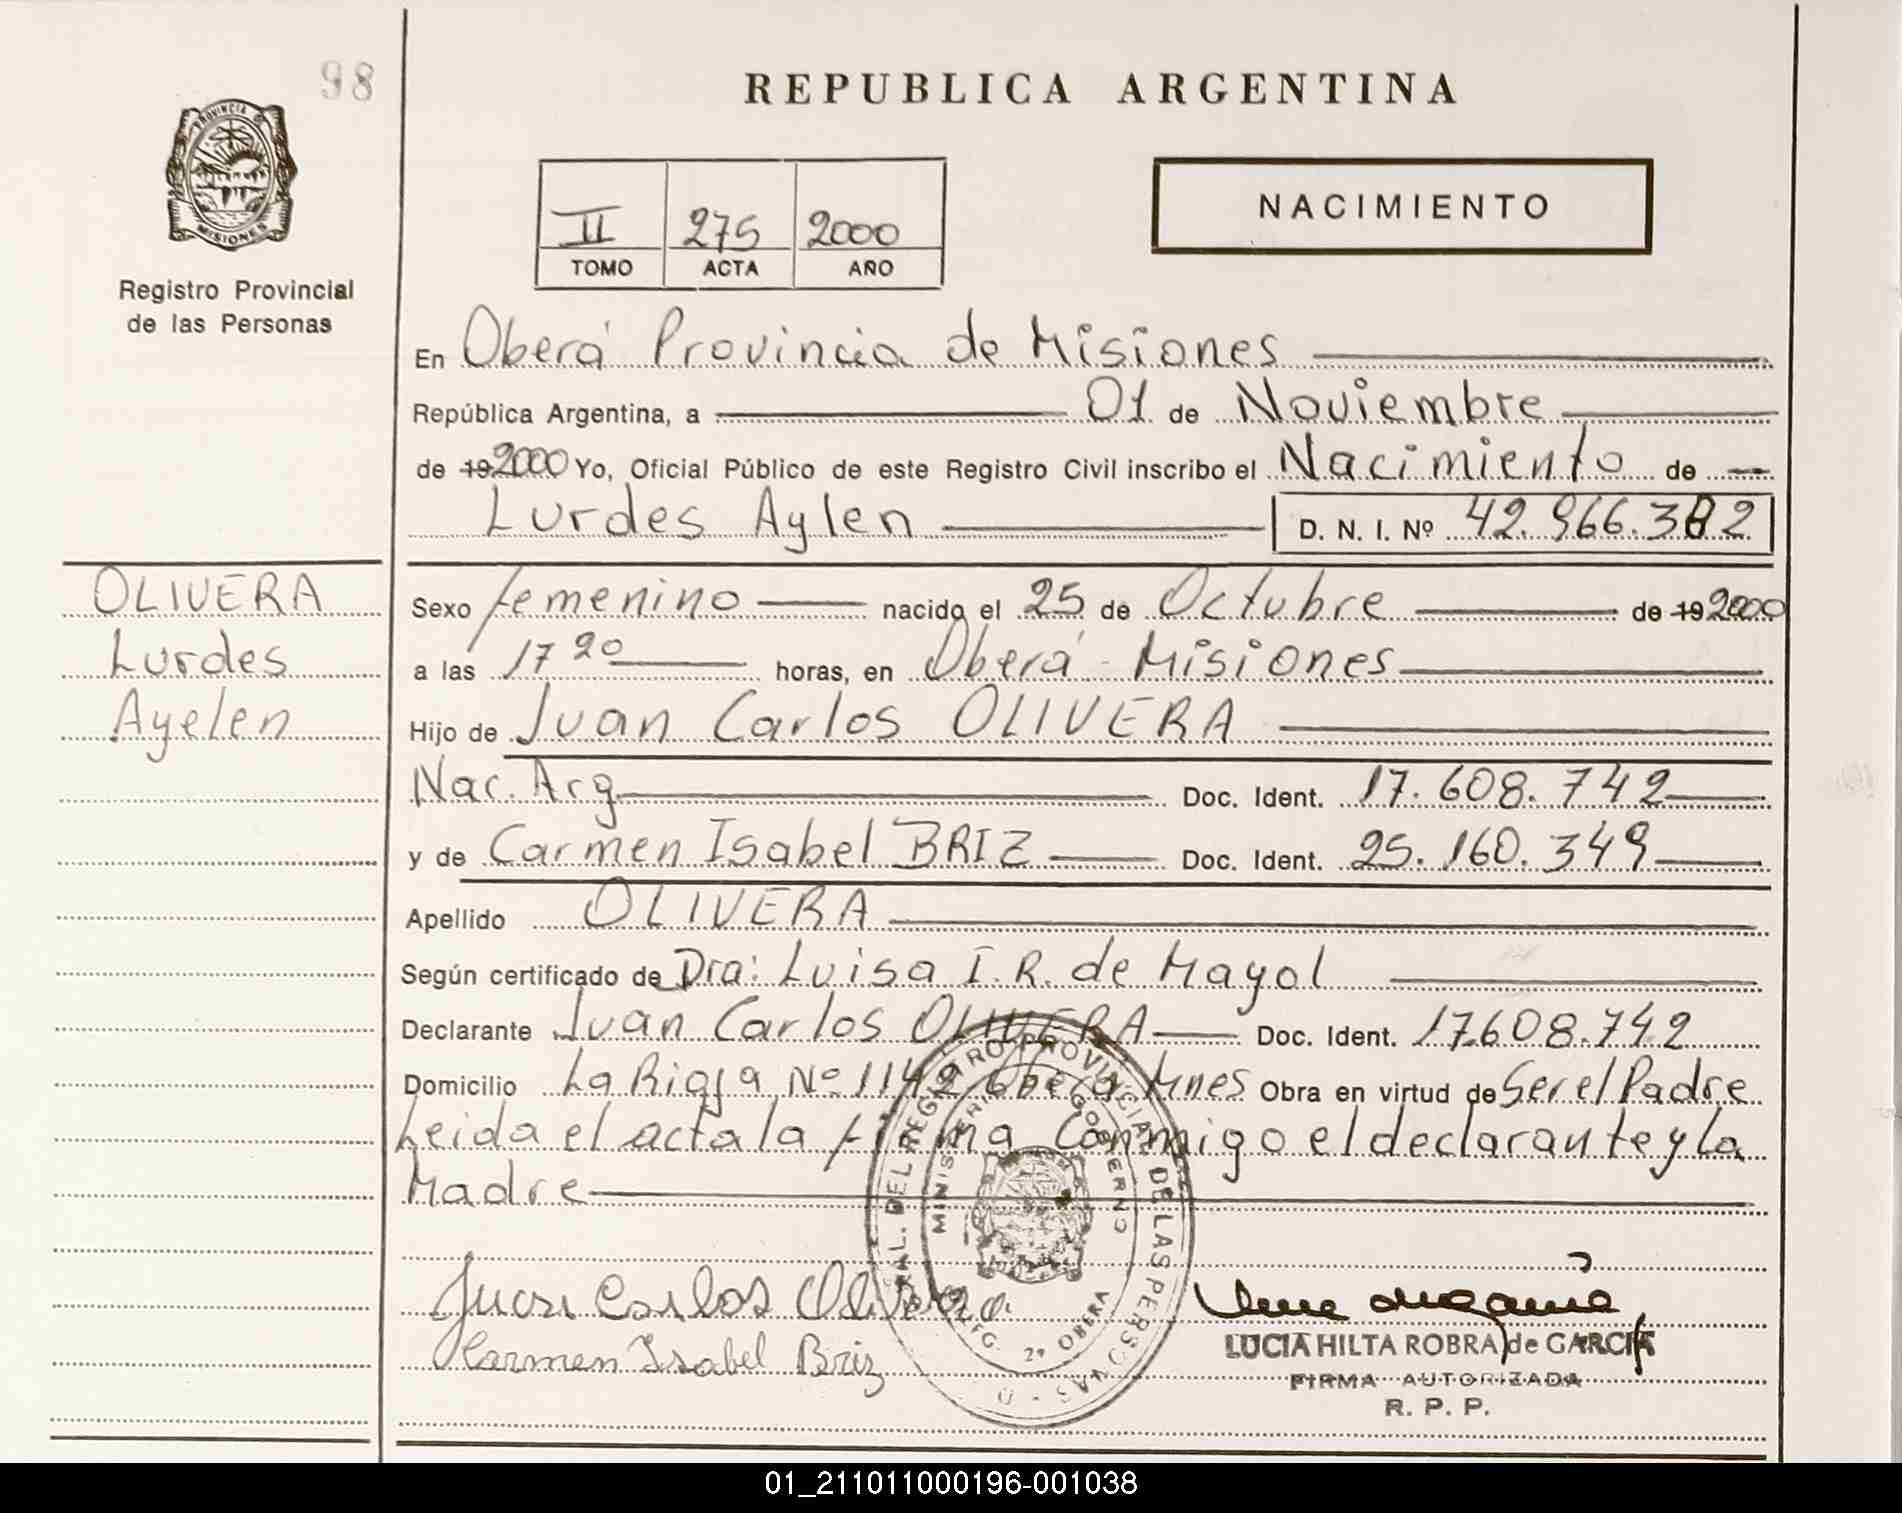 98
REPUBLICA ARGENTINA
PROVINCIA DE
MISIONES
Registro Provincial
de las Personas
II 275 2000
TOMO ACTA AÑO
NACIMIENTO
En Oberá Provincia de Misiones
República Argentina, a 01 de Noviembre
de 19 2000 Yo, Oficial Público de este Registro Civil inscribo el Nacimiento de
Lurdes Aylen D. N. I. Nº 42.966.382
OLIVERA
Lurdes
Ayelen
Sexo femenino nacido el 25 de Octubre de 19 2000
a las 17 20 horas, en Oberá - Misiones
Hijo de Juan Carlos OLIVERA
Nac. Arg. Doc. Ident. 17.608.742
y de Carmen Isabel BRIZ Doc. Ident. 25.160.349
Apellido OLIVERA
Según certificado de Dra: Luisa I. R. de Mayol
Declarante Juan Carlos OLIVERA Doc. Ident. 17.608.742
Domicilio La Rioja Nº 1142 Oberá Mnes Obra en virtud de Ser el Padre
Leida el acta la firma conmigo el declarante y la
Madre
GRAL. DEL REGISTRO PROVINCIAL DE LAS PERSONAS
MINISTERIO GOBIERNO
2ª OBERA
Juan Carlos Olivera
Carmen Isabel Briz
LUCIA HILTA ROBRA de GARCIA
FIRMA AUTORIZADA
R. P. P.
01_211011000196-001038